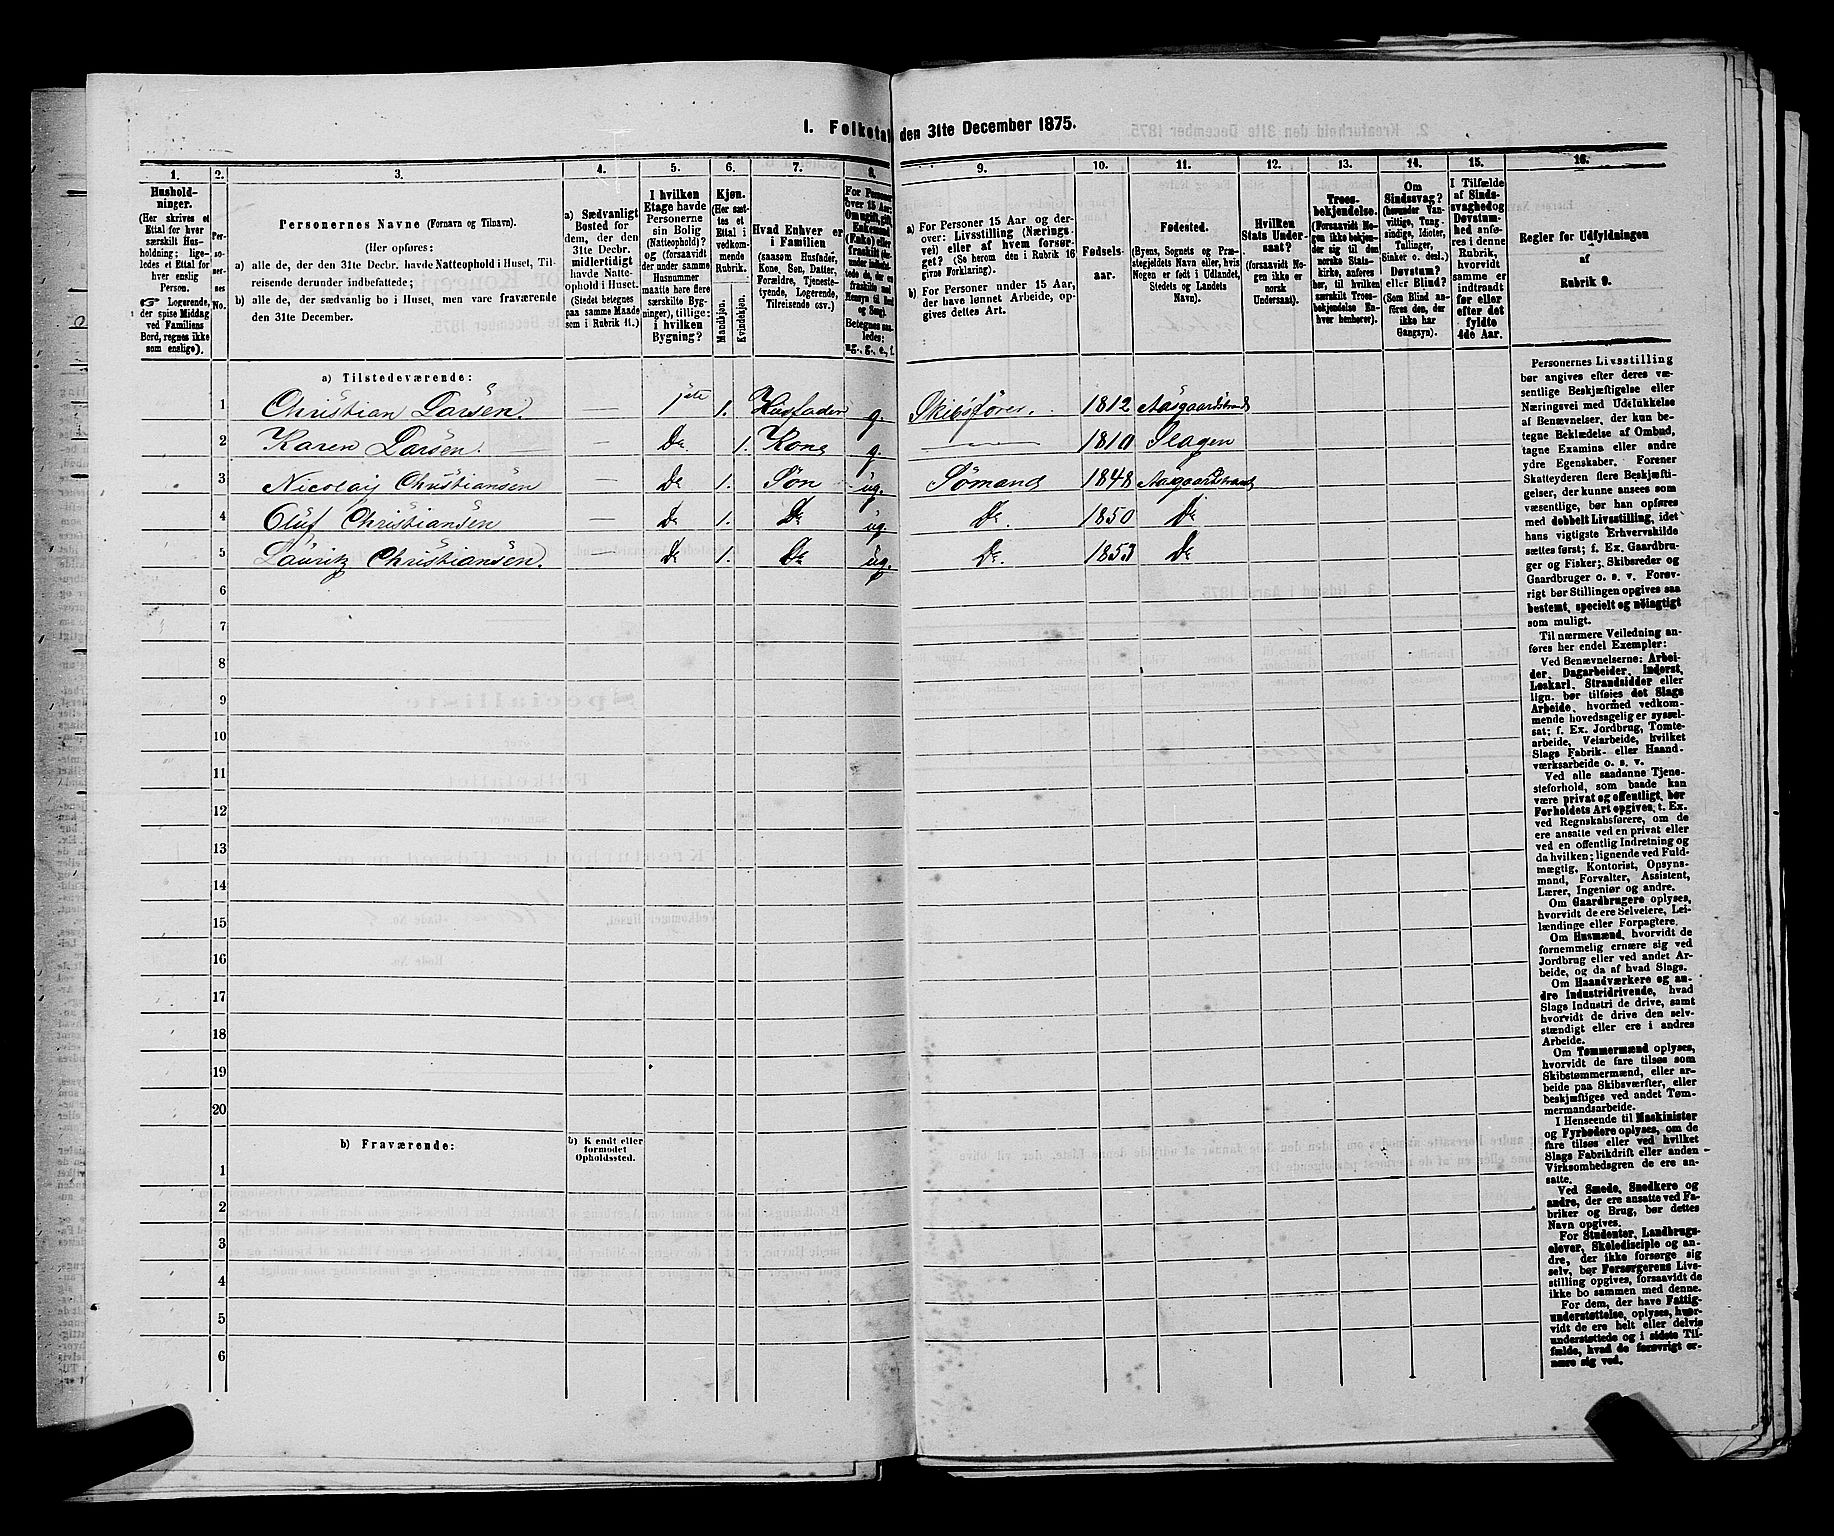 1. Folketal den 31te December 1875.
1. 2. 3. 4. 5. 6. 7. 8. 9. 10. 11. 12. 13. 14. 15. 16.
Hushold-
ninger.
(Her skrives et
Ettal for hver
særskilt Hus-
holdning; lige-
ledes et Ettal for
hver enslig
Person.
☞ Logerende,
der spise Middag
ved Familiens
Bord, regnes ikke
som enslige).
Per-
so-
ner-
nes
No.
Personernes Navne (Fornavn og Tilnavn).
(Her opføres:
a) alle de, der den 31te Decbr. havde Natteophold i Huset, Til-
reisende derunder indbefattede;
b) alle de, der sædvanlig bo i Huset, men vare fraværende
den 31te December.
a) Sædvanligt
Bosted for
dem, der den
31te Decbr.
midlertidigt
havde Natte-
ophold i Huset.
(Stedet betegnes
paa samme Maade
som i Rubrik 11.)
I hvilken
Etage havde
Personerne
sin Bolig
(Natteophold)?
og (forsaavidt
der under samme
Husnummer
maatte høre flere
særskilte Byg-
ninger), tillige:
i hvilken
Bygning?
Kjøn.
(Her sæt-
tes et
Ettal i
vedkom-
mende
Rubrik.
Mandkjøn.
Kvindekjøn.
Hvad Enhver er
i Familien
(saasom Husfader,
Kone, Søn, Datter,
Forældre, Tjeneste-
tyende, Logerende,
Tilreisende osv.)
For Personer
over 15 Aar:
Om ugift, gift,
Enkemand
(Enke) eller
fraskilt
Betegnes saa-
ledes:
ug., g., e., f.
a) For Personer 15 Aar og der-
over: Livsstilling (Nærings-
vei) eller af hvem forsør-
get? (Se herom den i Rubrik 16
givne Forklaring).
b) For Personer under 15 Aar,
der have lønnet Arbeide, op-
gives dettes Art.
Fødsels-
aar.
Fødested.
(Byens, Sognets og Præ-
stegjeldets Navn eller, hvis
Nogen er født i Udlandet,
Stedets og Landets
Navn).
Hvilken
Stats Under-
saat?
(forsaavidt No-
gen ikke er
norsk
Undersaat).
Troes-
bekjendelse.
(Forsaavidt No-
gen ikke bekjen-
der sig til den
norske Stats-
kirke, anføres
her, til hvilken
særskilt Troes-
bekjendelse En-
hver henhører).
Om
Sindssvag?
(herunder Van-
vittige, Tung-
sindige, Idioter,
Tullinger,
Sinker o. desl.)
Døvstum?
eller Blind?
(Som Blind an-
føres den, der
ikke har
Gangsyn).
I Tilfælde
af Sinds-
svaghed og
Døvstum-
hed anfø-
res i denne
Rubrik,
hvorvidt
samme er
indtraadt
før eller
efter det
fyldte
4de Aar.
Regler for Udfyldningen
af
Rubrik 9.
a) Tilstedeværende:
1 Christian Larsen. — 1ste 1. Husfader g. Skibsfører. 1812 Aasgaardstrand
2 Karen Larsen. — Do. 1. Kone g. — 1810 Slagen
3 Nicolaij Christiansen — Do 1. Søn ug. Sømand 1848 Aasgaardstrand
4 Oluf Christiansen — Do 1. Do ug. Do. 1850 Do
5 Lauritz Christiansen. Do 1. Do ug. Do. 1853 Do
6
7
8
9
10
11
12
13
14
15
16
17
18
19
20
b) Fraværende: b) Kjendt eller
formodet
Opholdssted.
1
2
3
4
5
6
Personernes Livsstilling
bør angives efter deres væ-
sentlige Beskjæftigelse eller
Næringsvei med Udelukkelse
af Benævnelser, der kun be-
tegne Beklædelse af Ombud,
tagne Examina eller andre
ydre Egenskaber. Forener
Skatteyderen flere Beskjæfti-
gelser, der kunne ansees som
væsentlige, bør han opføres
med dobbelt Livsstilling, idet
hans vigtigste Erhvervskilde
sættes først; f. Ex. Gaardbru-
ger og Fisker; Skibsreder og
Gaardbruger o. s. v. Forøv-
rigt bør Stillingen opgives saa
bestemt, specielt og nøiagtigt
som muligt.
Til nærmere Veiledning an-
føres her endel Exempler:
Ved Benævnelserne: Arbei-
der, Dagarbeider, Inderst,
Løskarl, Strandsidder eller
lign. bør tilføies det Slags
Arbeide, hvormed vedkom-
mende hovedsagelig er syssel-
sat; f. Ex. Jordbrug, Tomte-
arbeide, Veiarbeide, hvilket
Slags Fabrik- eller Haand-
værksarbeide o. s. v.
Ved alle saadanne Tjene-
steforhold, som baade kan
være privat og offentligt, bør
Forholdets Art opgives, t. Ex.
ved Regnskabsførere, om de
ere ansatte ved en privat eller
ved en offentlig Indretning og
da hvilken; lignende ved Fuld-
mægtig, Kontorist, Opsyns-
mand, Forvalter, Assistent,
Lærer, Ingeniør og andre.
Om Gaardbrugere oplyses,
hvorvidt de ere Selveiere, Lei-
lændinge eller Forpagtere.
Om Husmænd, hvorvidt de
fornemmelig ernære sig ved
Jordbrug eller ved andet Ar-
beide, og da af hvad Slags.
Om Haandværkere og an-
dre Industridrivende, hvad
Slags Industri de drive, samt
hvorvidt de drive den selv-
stændigt eller ere i andres
Arbeide.
Om Tømmermænd oplyses,
hvorvidt de fare tilsøs som
Skibstømmermænd, eller ar-
beide paa Skibsværfter, eller
beskjæftiges ved andet Tøm-
mermandsarbeide.
I Henseende til Maskinister
og Fyrbødere oplyses, om de
fare tilsøs eller ved hvilket
Slags Fabrikdrift eller anden
Virksomhedsgren de ere an-
satte.
Ved Smede, Snedkere og
andre, der ere ansatte ved Fa-
briker og Brug, bør dettes
Navn opgives.
For Studenter, Landbrugs-
elever, Skoledisciple og an-
dre, der ikke forsørge sig
selv, bør Forsørgerens Livs-
stilling opgives, forsaavidt de
ikke bo sammen med denne.
For dem, der have Fattig-
understøttelse, oplyses, hvor-
vidt de ere helt eller delvis
understøttede og i sidste Til-
fælde, hvad de forøvrigt er-
nære sig ved.